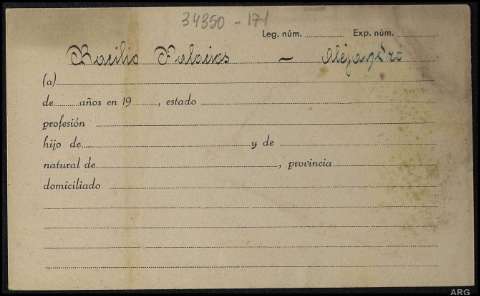 34350 - 171
Leg. núm. Exp. núm.
Basilio Palacios - Alejandro
(a)
de años en 19 , estado
profesión
hijo de y de
natural de , provincia
domiciliado
ARG